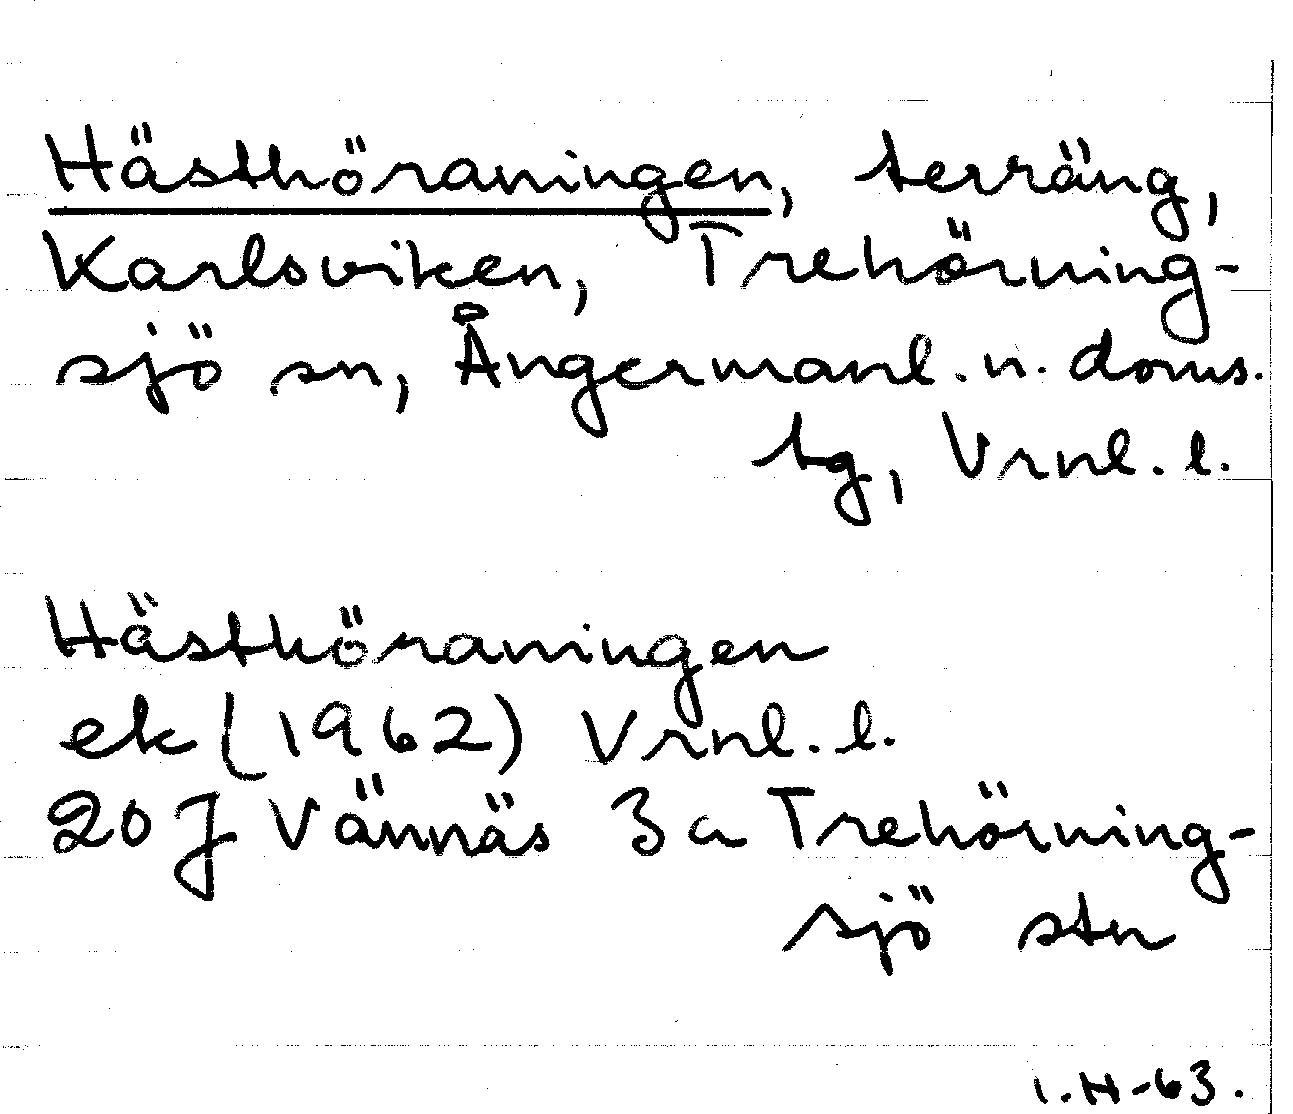 Hästhöraningen, terräng,
Karlsviken, Trehörning-
sjö sn, Ångermanl. n. doms.
tg, Vrnl. l.
Hästhöraningen
ek (1962) Vrnl. l.
20 J Vännäs 3 a Trehörning-
sjö stn
I.H-63.